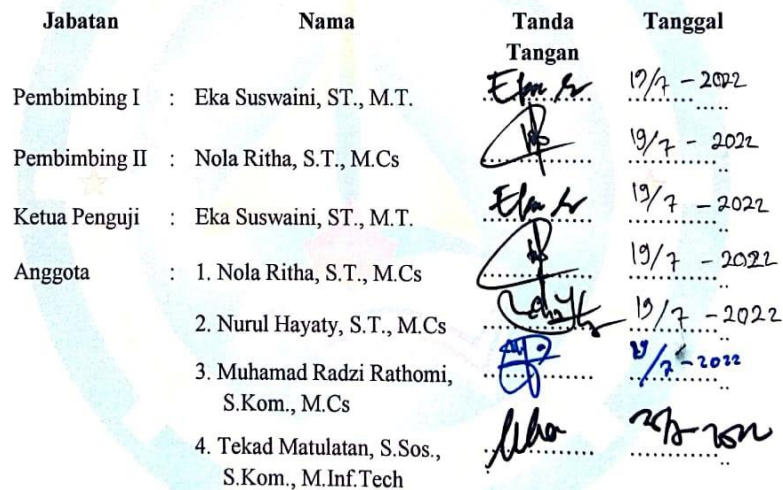 Jabatan Nama Tanda Tanggal
Tangan
Pembimbing I : Eka Suswaini, ST., M.T. 19/7 - 2022
Pembimbing II : Nola Ritha, S.T., M.Cs 19/7 - 2022
Ketua Penguji : Eka Suswaini, ST., M.T. 19/7 - 2022
Anggota : 1. Nola Ritha, S.T., M.Cs 19/7 - 2022
2. Nurul Hayaty, S.T., M.Cs 19/7 - 2022
3. Muhamad Radzi Rathomi, /7 - 2022
S.Kom., M.Cs
4. Tekad Matulatan, S.Sos.,
S.Kom., M.Inf.Tech